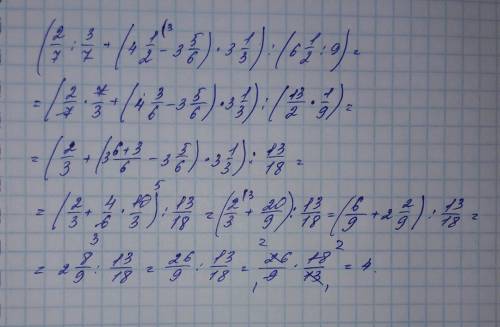 (2/7 : 3/7 + (4 1/2^(3 - 3 5/6) · 3 1/3) : (6 1/2 : 9) =
= (2/7 · 7/3 + (4 3/6 - 3 5/6) · 3 1/3) : (13/2 · 1/9) =
= (2/3 + (3 6+3/6 - 3 5/6) · 3 1/3) : 13/18 =
= (2/3 + 4/6 3 · 10 5/3) : 13/18 = (2^(3/3 + 20/9) : 13/18 = (6/9 + 2 2/9) : 13/18 =
= 2 8/9 : 13/18 = 26/9 : 13/18 = 2 26/9 1 · 18 2/13 1 = 4.